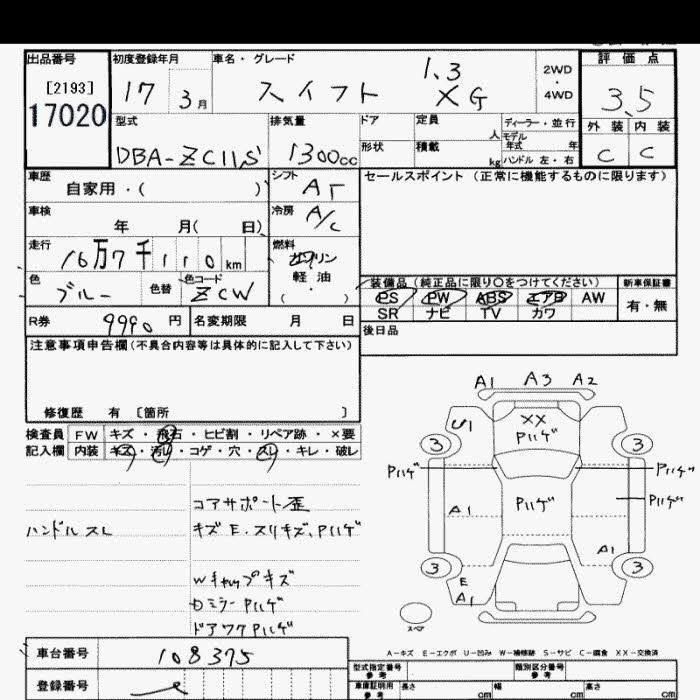 出品番号 初度登録年月 車名・グレード 評価点
[2193] 17 3月 スイフト 1.3 XG 2WD・4WD 3.5
17020
型式 排気量 ドア 定員 人 ディーラー・並行 外装 内装
DBA-ZC11S 1300cc 形状 積載 kg モデル年式 年 C C
ハンドル 左・右
車歴 シフト セールスポイント (正常に機能するものに限ります)
自家用・( ) AT
車検 冷房
年 月( 日) A/C
走行 燃料
16万7千110km ガソリン
軽油
色 色替 色コード ( )
ブルー ZCW
装備品(純正品に限り○をつけてください) 新車保証書
PS PW ABS エアB AW 有・無
SR ナビ TV カワ
R券 9990円 名変期限 月 日 後日品
注意事項申告欄(不具合内容等は具体的に記入して下さい)
修復歴 有 [箇所 ]
検査員 FW キズ・飛石・ヒビ割・リペア跡・×要
記入欄 内装 キズ・汚レ・コゲ・穴・スレ・キレ・破レ
コアサポート歪
ハンドルスレ キズ E.スリキズ、Pハゲ
Wキャップキズ
Dミラー Pハゲ
ドアワク Pハゲ
A1 A3 A2
U1 XX
Pハゲ
3 3
Pハゲ Pハゲ
Pハゲ Pハゲ
A1
A1
3 E 3
A1
スペア
A-キズ E-エクボ U-凹み W-補修跡 S-サビ C-腐食 XX-交換済
車台番号 108375
登録番号
型式指定番号 参考 類別区分番号 参考
車庫証明用 参考 長さ cm 幅 cm 高さ cm